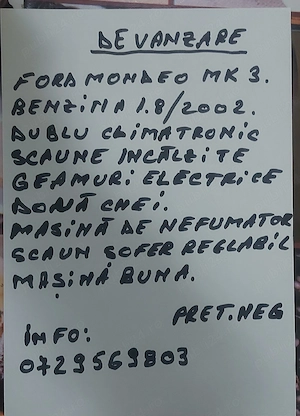 DE VANZARE
FORD MONDEO MK 3.
BENZINA 1.8/2002.
DUBLU CLIMATRONIC
SCAUNE INCĂLZITE
GEAMURI ELECTRICE
DOUĂ CHEI.
MAȘINĂ DE NEFUMATOR
SCAUN SOFER REGLABIL
MAȘINĂ BUNA.
PRET.NEG
INFO:
0729569803